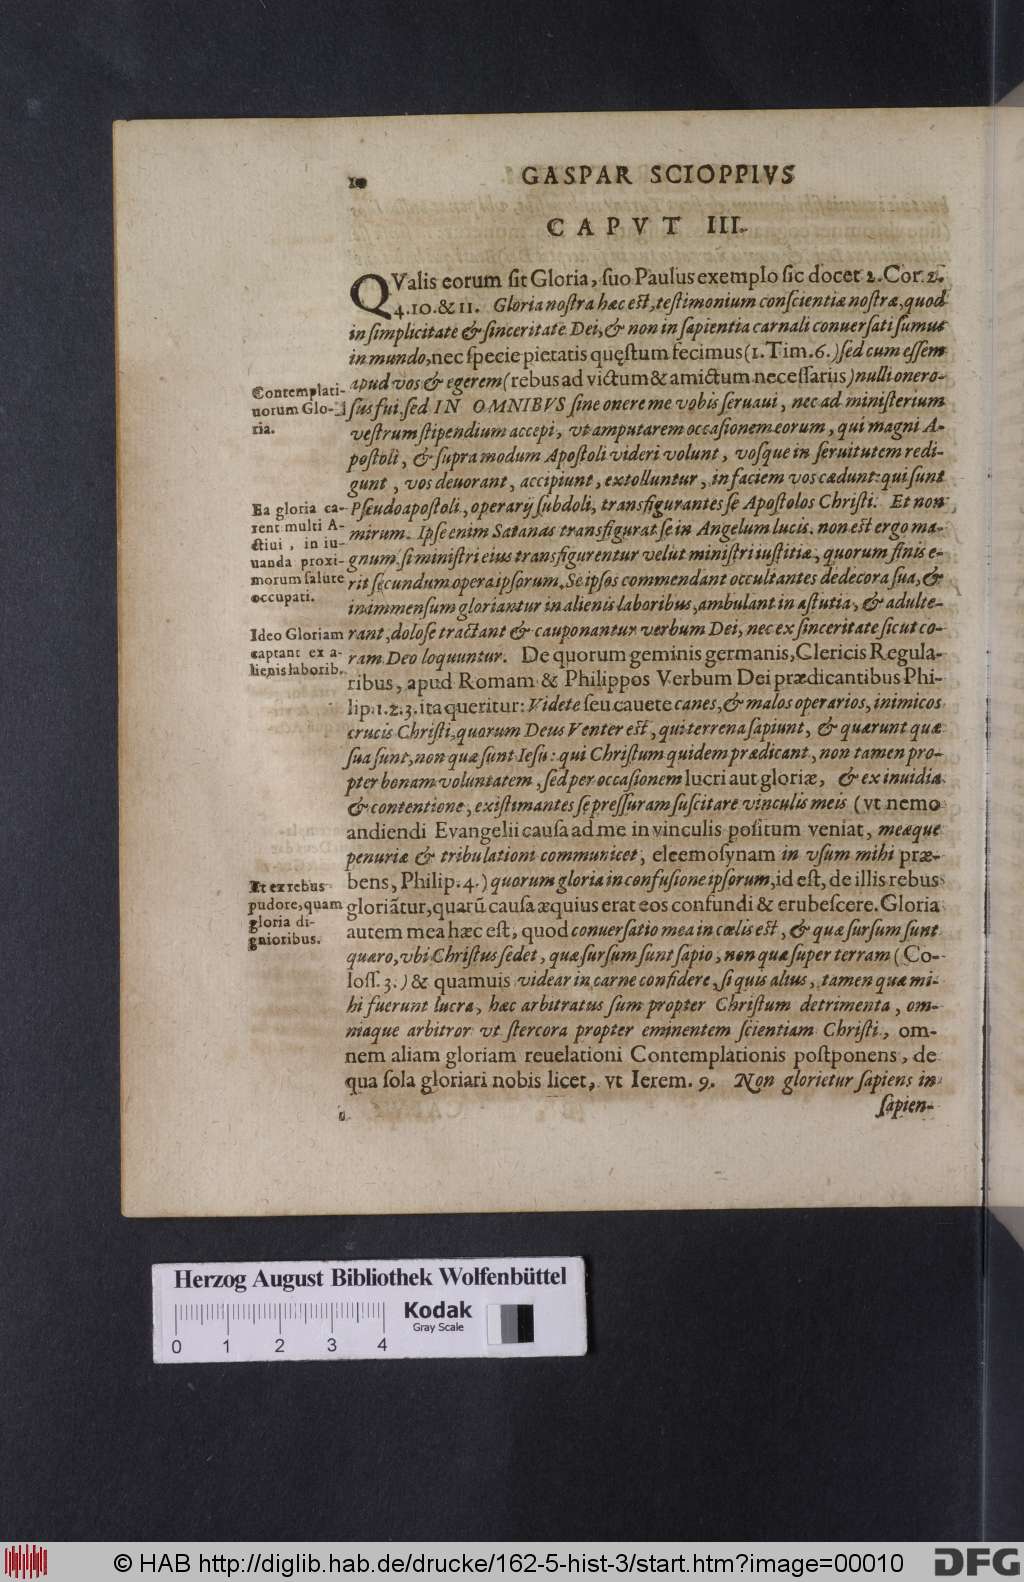 10
GASPAR SCIOPPIVS
CAPVT III.
QValis eorum sit Gloria, suo Paulus exemplo sic docet 2. Cor. 2.
4. 10. & 11. Gloria nostra hæc est, testimonium conscientiæ nostræ, quod
in simplicitate & sinceritate Dei, & non in sapientia carnali conuersati sumus
in mundo, nec specie pietatis quęstum fecimus (1. Tim. 6.) sed cum essem
apud vos & egerem (rebus ad victum & amictum necessariis) nulli onero-
sus fui. sed IN OMNIBVS sine onere me vobis seruaui, nec ad ministerium
vestrum stipendium accepi, vt amputarem occasionem eorum, qui magni A-
postoli, & supra modum Apostoli videri volunt, vosque in seruitutem redi-
gunt, vos deuorant, accipiunt, extolluntur, in faciem vos cædunt: qui sunt
Pseudoapostoli, operarij subdoli, transfigurantes se Apostolos Christi. Et non
mirum. Ipse enim Satanas transfigurat se in Angelum lucis. non est ergo ma-
gnum, si ministri eius transfigurentur velut ministri iustitiæ, quorum finis e-
rit secundum opera ipsorum. Se ipsos commendant occultantes dedecora sua, &
in immensum gloriantur in alienis laboribus, ambulant in astutia, & adulte-
rant, dolose tractant & cauponantur verbum Dei, nec ex sinceritate sicut co-
ram Deo loquuntur. De quorum geminis germanis, Clericis Regula-
ribus, apud Romam & Philippos Verbum Dei prædicantibus Phi-
lip. 1. 2. 3. ita queritur: Videte seu cauete canes, & malos operarios, inimicos
crucis Christi, quorum Deus Venter est, qui terrena sapiunt, & quærunt quæ
sua sunt, non quæ sunt Iesu: qui Christum quidem prædicant, non tamen pro-
pter bonam voluntatem, sed per occasionem lucri aut gloriæ, & ex inuidia
& contentione, existimantes se pressuram suscitare vinculis meis (vt nemo
andiendi Evangelii causa ad me in vinculis positum veniat, meæque
penuriæ & tribulationi communicet, eleemosynam in vsum mihi præ-
bens, Philip. 4.) quorum gloria in confusione ipsorum, id est, de illis rebus
gloriãtur, quarũ causa æquius erat eos confundi & erubescere. Gloria
autem mea hæc est, quod conuersatio mea in cœlis est, & quæ sursum sunt
quæro, vbi Christus sedet, quæ sursum sunt sapio, non quæ super terram (Co-
loss. 3.) & quamuis videar in carne confidere, si quis alius, tamen quæ mi-
hi fuerunt lucra, hæc arbitratus sum propter Christum detrimenta, om-
niaque arbitror vt stercora propter eminentem scientiam Christi, om-
nem aliam gloriam reuelationi Contemplationis postponens, de
qua sola gloriari nobis licet, vt Ierem. 9. Non glorietur sapiens in
sapien-
Contemplati-
uorum Glo-
ria.
Ea gloria ca-
rent multi A-
ctiui, in iu-
uanda proxi-
morum salute
occupati.
Ideo Gloriam
captant ex a-
lienis laborib.
Et ex rebus
pudore, quam
gloria di-
gnioribus.
Herzog August Bibliothek Wolfenbüttel
Kodak
Gray Scale
0 1 2 3 4
© HAB http://diglib.hab.de/drucke/162-5-hist-3/start.htm?image=00010
DFG